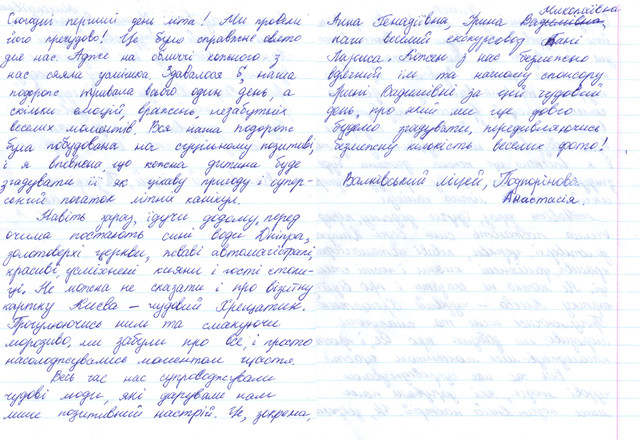 Сьогодні перший день літа! Ми провели
його пречудово! Це було справжнє свято
для нас. Адже на обличчі кожного з
нас сяяла усмішка. Здавалося б, наша
подорож тривала всього один день, а
скільки емоцій, вражень, незабутніх
веселих моментів. Вся наша подорож
була побудована на суцільному позитиві,
і я впевнена, що кожна дитина буде
згадувати її як цікаву пригоду і супер-
ський початок літніх канікул.
Навіть зараз, їдучи додому, перед
очима постають сині води Дніпра,
золотоверхі церкви, жваві автомагістралі,
красиві, усміхнені кияни і гості столи-
ці. Не можна не сказати і про візитну
картку Києва – чудовий Хрещатик.
Прогулюючись ним та смакуючи
морозиво, ми забули про все, і просто
насолоджувались моментом щастя.
Весь час нас супроводжували
чудові люди, які дарували нам
лише позитивний настрій. Це, зокрема,
Миколаївна
Анна Генадіївна, Ірина Вадимівна,
наш веселий екскурсовод пані
Лариса. Кожен з нас безмежно
вдячний їм та нашому спонсору
Ірині Вадимівні за цей чудовий
день, про який ми ще довго
будемо згадувати, передивляючись
безмежну кількість веселих фото!
Валківський ліцей,
Анастасія.